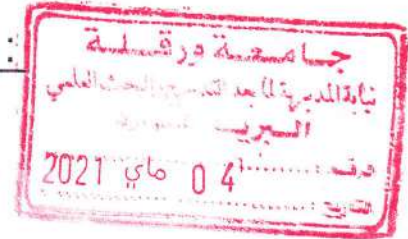 جامعة ورقلة
نيابة المديرية لما بعد التدرج والبحث العلمي
البريد
رقم :
التاريخ : 04 ماي 2021